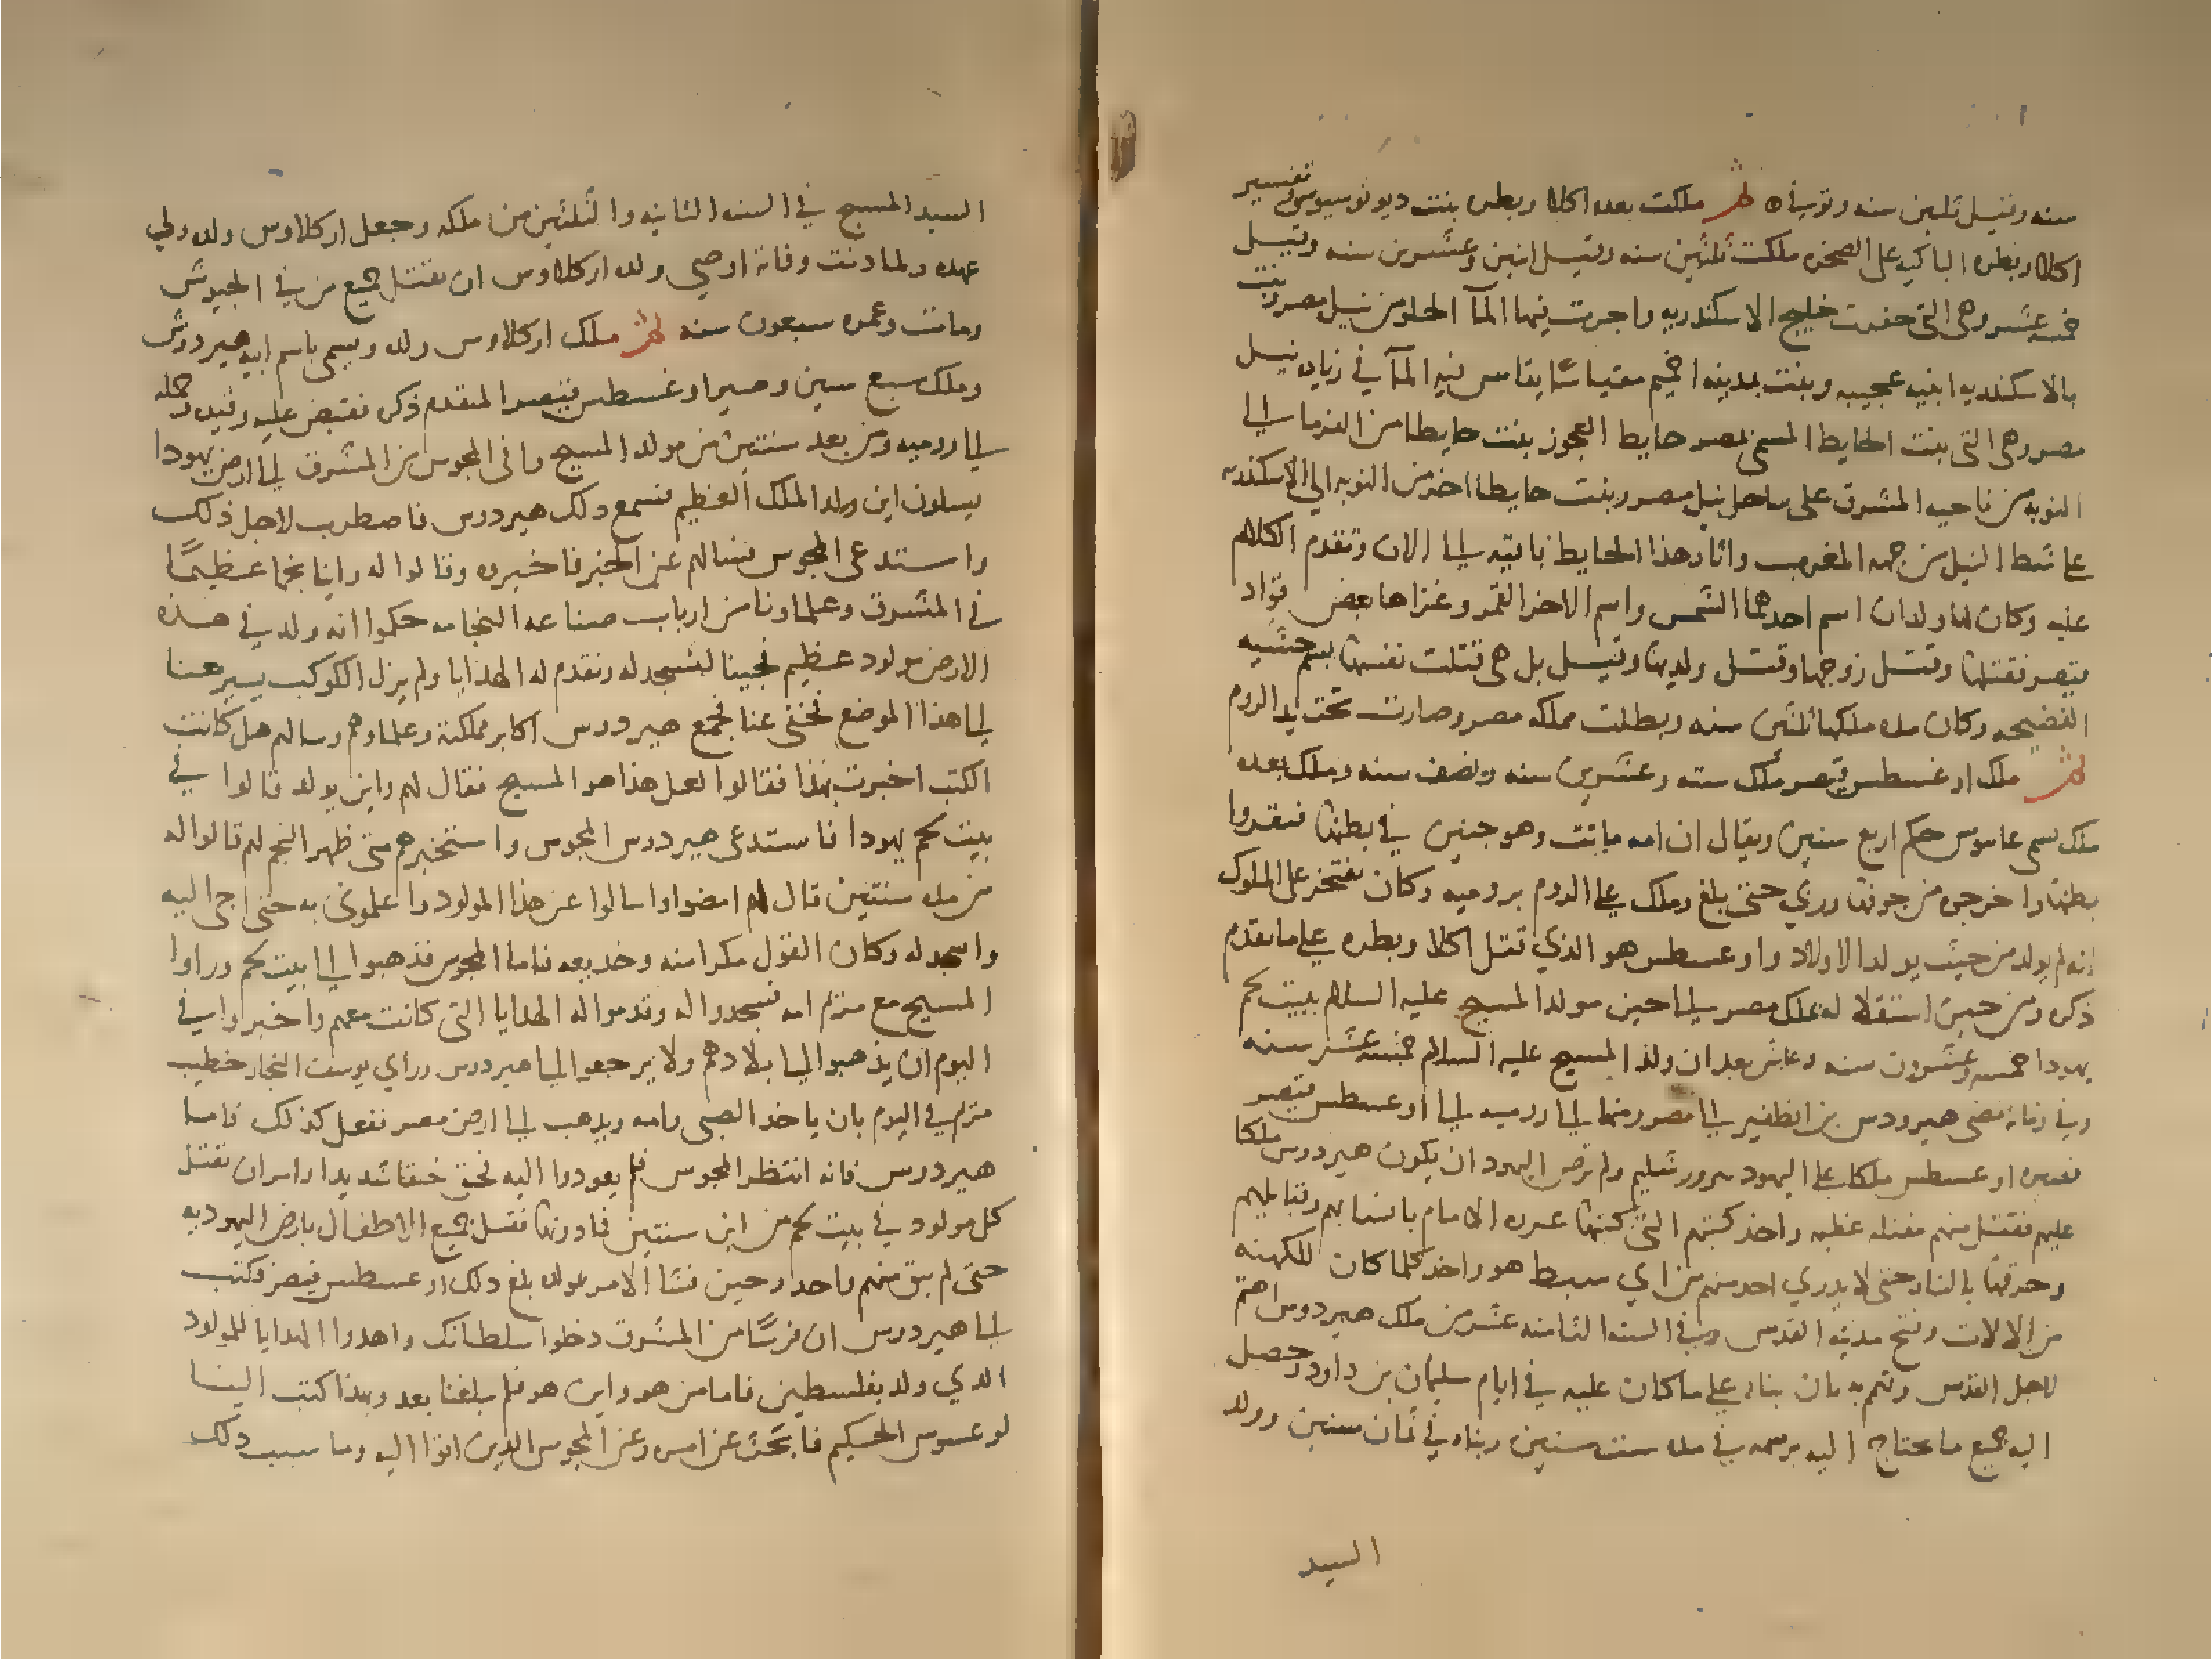 سنه وقيل ثلثين سنه وتوفيا ه ثم ملكت بعده اكلا وبطره بنت ديونوسيوس وتفسير
اكلا وبطره الباكيه على الصخره ملكت ثلثين سنه وقيل اثنين وعشرين سنه وقيل
خمسه عشر وهى التى حفرت خليج الاسكندريه واجرت فيها المآ الحلو من نيل مصر وبنت
بالاسكندريه ابنيه عجيبه وبنت بمدينه اخميم مقياسًا يقاس فيه المآ في زياده نيل
مصر وهى التى بنت الحايط المسمى بمصر حايط العجوز بنت حايطا من الفرما الى
النوبه من ناحيه المشرق على ساحل نيل مصر وبنت حايطا اخر من النوبه الى الاسكندريه
على شط النيل من جهه المغرب واثار هذا الحايط باقيه الى الان وتقدم الكلام
عليه وكان لها ولدان اسم احدهما الشمس واسم الاخر القمر وغزاها بعض قواد
قيصر فقتلها وقتل زوجها وقتل ولديها وقيل بل هى قتلت نفسها بسم خشيه
الفضيحه وكان مده ملكها ثلثين سنه وبطلت مملكه مصر وصارت تحت يد الروم
ثم ملك اوغسطس قيصر ملك سته وعشرين سنه ونصف سنه وملك بعده
ملك يسمى عاموس حكم اربع سنين ويقال ان امه ماتت وهو جنين في بطنها فبقروا
بطنها واخرجوه من جوفها وربي حتى بلغ وملك على الروم بروميه وكان يفتخر على الملوك
انه لم يولد من حيث يولد الاولاد واوغسطس هو الذي قتل اكلا وبطره على ما تقدم
ذكره ومن حين استقلا له ملك مصر الى حين مولد المسيح عليه السلام ببيت لحم
يهودا خمسه وعشرون سنه وعاش بعد ان ولد المسيح عليه السلام خمسه عشر سنه
وفي زمانه مضى هيرودس بن انطفير الى مصر ومنها الى روميه الى اوغسطس قيصر
فصيره اوغسطس ملكا على اليهود بيرورشليم ولم ترض اليهود ان يكون هيرودس ملكا
عليهم فقتل منهم مقتله عظيمه واخذ كتبهم التى كتبها عزره الامام بانسابهم وقبايلهم
وحرقها بالنار حتى لا يدري احد منهم من اي سبط هو واخذ كلما كان للكهنه
من الالات وفتح مدينه القدس وفي السنه الثامنه عشر من ملك هيرودس اهتم
لاجل القدس وتهم به بان بناه على ما كان عليه في ايام سليمان بن داود وحصل
اليه جميع ما يحتاج اليه برسمه في مده ست سنين وبناه في ثمان سنين وولد
السيد
السيد المسيح في السنه الثانيه والثلثين من ملكه وجعل اركلاوس ولده ولي
عهده ولما دنت وفاته اوصي ولده اركلاوس ان يقتل جميع من في الحبوس
ومات وعمره سبعون سنه ثم ملك اركلاوس ولده ويسمى باسم ابيه هيردوس
وملك سبع سنين وصير اوغسطس قيصر المتقدم ذكره فقبض عليه وقيده وحمله
الى روميه ومن بعد سنتين من مولد المسيح وافى المجوس من المشرق الى ارض يهودا
يسلون اين ولد الملك العظيم فسمع دلك هيردوس فاضطرب لاجل ذلك
واستدعى المجوس فسالهم عن الخبر فاخبروه وقالوا له راينا نجما عظيمًا
في المشرق وعلماونا من ارباب صناعه النجامه حكموا انه ولد في هذه
الارض مولود عظيم فجينا لنسجد له ونقدم له الهدايا ولم يزل الكوكب يسير معنا
الى هذا الموضع فخفى عنا فجمع هيردوس اكابر مملكته وعلماوهم وسالهم هل كانت
الكتب اخبرت بهذا فقالوا لعل هذا هو المسيح فقال لهم واين يولد قالوا في
بيت لحم يهودا فاستدعى هيردوس المجوس واستخبرهم متى ظهر النجم لهم قالوا له
من مده سنتين قال لهم امضوا واسالوا عن هذا المولود واعلموني به حتى اجى اليه
واسجد له وكان القول مكرا منه وخديعه فاما المجوس فذهبوا الى بيت لحم وراوا
المسيح مع مريم امه فسجدوا له وقدموا له الهدايا التى كانت معهم واخبروا في
اليوم ان يذهبوا الى بلادهم ولا يرجعوا الى هيردوس وراي يوسف النجار خطيب
مريم في اليوم بان ياخذ الصبي وامه ويذهب الى ارض مصر ففعل كذلك فاما
هيردوس فانه انتظر المجوس فلم يعودوا اليه فحنق حنقا شديدا وامر ان يقتل
كل مولود في بيت لحم من ابن سنتين فادونها فقتل جميع الاطفال بارض اليهوديه
حتى لم يبق منهم واحد وحين فشا الامر بمولده بلغ دلك اوغسطس قيصر فكتب
الى هيردوس ان فرسًا من المشرق دخلوا سلطانك واهدوا الهدايا للمولود
الدي ولد بفلسطين فاما من هو واين هو فلم يبلغنا بعد وبهذا كتب الينا
لوعسوس الحكيم فابحث عن امره وعن المجوس الذين اتوا اليه وما سبب دلك